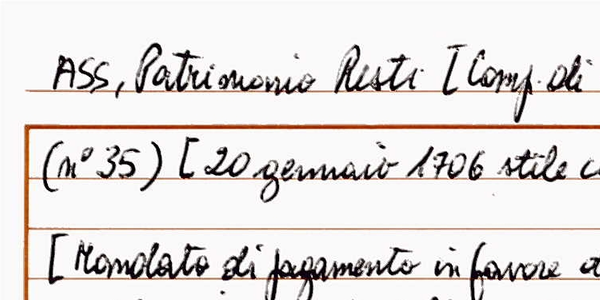 ASS, Patrimonio Resti [Comp. di
(n° 35) [20 gennaio 1706 stile c
[Mandato di pagamento in favore